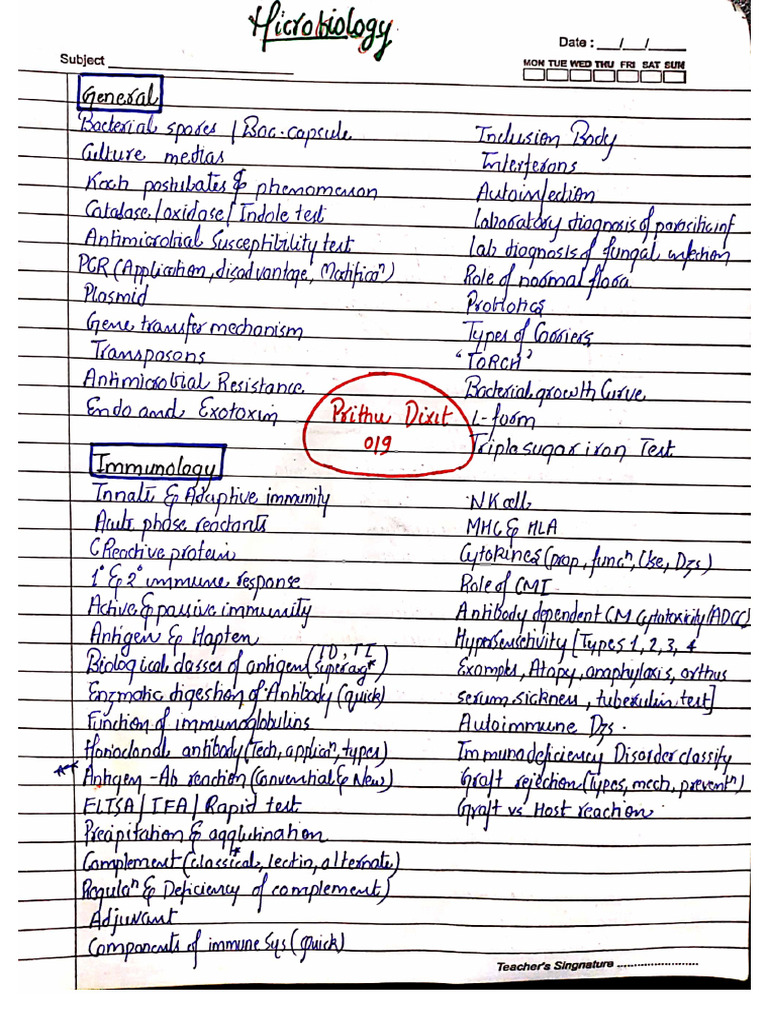 Microbiology
Date : ___/___/_____
Subject ____________________
MON TUE WED THU FRI SAT SUN
General
Bacterial spores / Bac. capsule
Culture medias
Koch postulates & phenomenon
Catalase / oxidase / Indole test
Antimicrobial Susceptibility test
PCR (Application, disadvantage, Modificaⁿ)
Plasmid
Gene transfer mechanism
Transposons
Antimicrobial Resistance
Endo and Exotoxin
Inclusion Body
Interferons
Autoinfection
Laboratory diagnosis of parasitic inf
Lab diagnosis of fungal infection
Role of normal flora
Probiotics
Types of Carriers
"TORCH"
Bacterial growth Curve
L-form
Triple sugar iron Test
Prithu Dixit
019
Immunology
Innate & Adaptive immunity
Acute phase reactants
C Reactive protein
1° & 2° immune response
Active & passive immunity
Antigen & Hapten
Biological classes of antigen (TD, TI Superag*)
Enzmatic digestion of Antibody (quick)
Function of immunoglobulins
Monoclonal antibody (Tech, applicaⁿ, types)
** Antigen - Ab reaction (Convential & New)
ELISA / IFA / Rapid test
Precipitation & agglutination
Complement (classical*, lectin, alternate)
Regulaⁿ & Deficiency of complement)
Adjuvant
Components of immune Sys (quick)
NK cell
MHC & HLA
Cytokines (prop, funcⁿ, Use, Dzs)
Role of CMI
Antibody dependent CM Cytotoxicity (ADCC)
Hypersensitivity [Types 1, 2, 3, 4
Examples, Atopy, anaphylaxis, arthus
serum sickness, tuberulin test]
Autoimmune Dzs.
Immunodeficiency Disorder classify
Graft rejection (types, mech, preventⁿ)
Graft vs Host reaction
Teacher's Singnature ........................